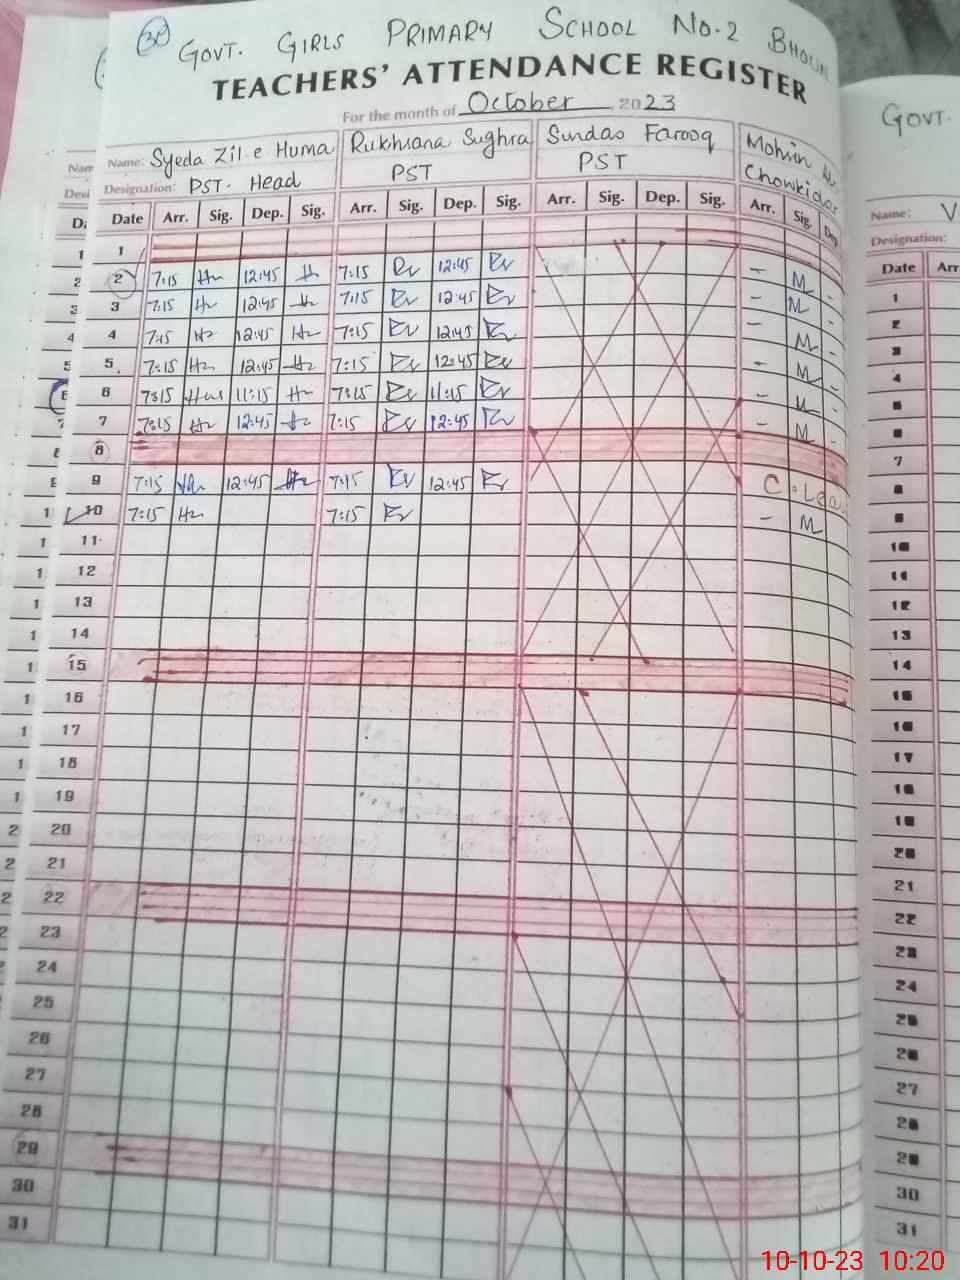 30
GOVT. GIRLS PRIMARY SCHOOL NO.2
TEACHERS' ATTENDANCE REGISTER
For the month of October, 2023
Name: Syeda Zil e Huma Rukhsana Sughra Sundas Farooq Mohsin
Designation: PST. Head PST PST Chowkidar
Date Arr. Sig. Dep. Sig. Arr. Sig. Dep. Sig. Arr. Sig. Dep. Sig. Arr. Sig. Dep
1
2 7:15 Hu 12:45 H 7:15 Rv 12:45 Rv - M -
3 7:15 Hu 12:45 Hu 7:15 Rv 12:45 Rv - M -
4 7:15 Hu 12:45 Hu 7:15 Rv 12:45 Rv - M -
5 7:15 Hu 12:45 Hu 7:15 Rv 12:45 Rv - M -
6 7:15 Hu 11:15 Hu 7:15 Rv 11:15 Rv - M -
7 7:15 Hu 12:45 Hu 7:15 Rv 12:45 Rv - M -
8
9 7:15 Hu 12:45 Hu 7:15 Rv 12:45 Rv C. Lea
10 7:15 Hu 7:15 Rv - M
11
12
13
14
15
16
17
18
19
20
21
22
23
24
25
26
27
28
29
30
31
GOVT.
Name:
Designation:
Date Arr
1
2
3
4
5
6
7
8
9
10
11
12
13
14
15
16
17
18
19
20
21
22
23
24
25
26
27
28
29
30
31
10-10-23 10:20